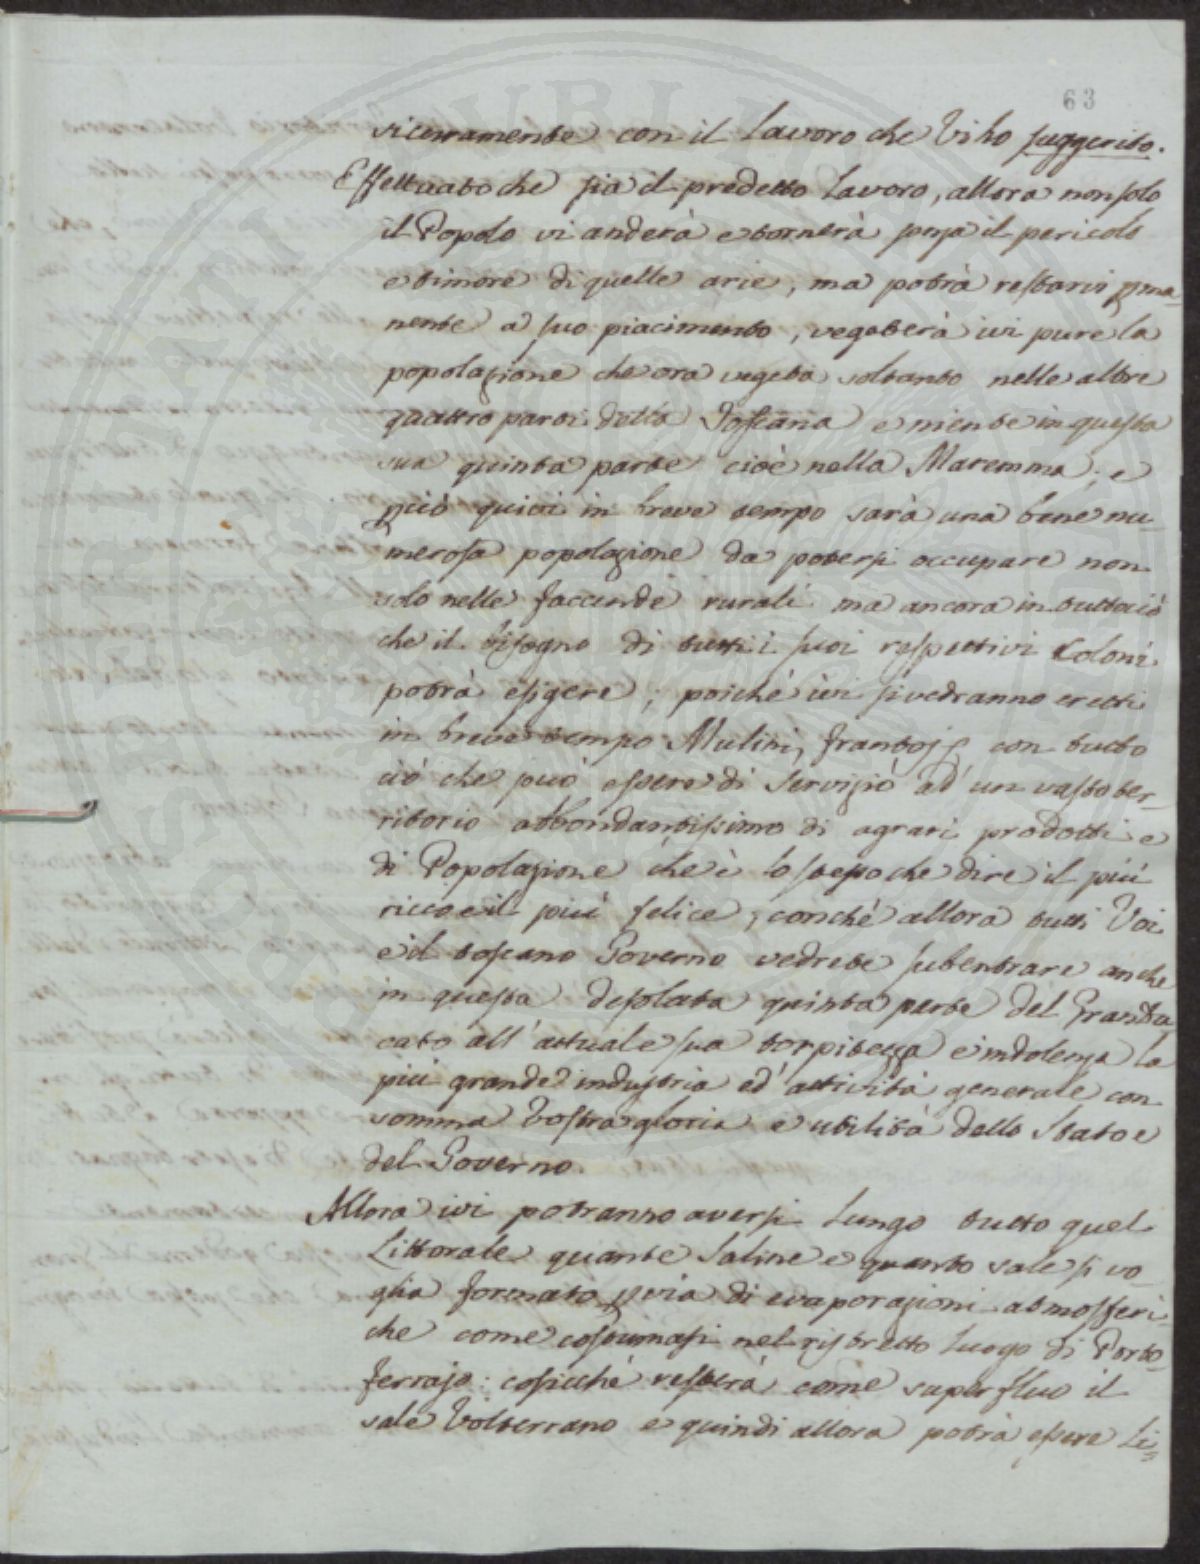 63
sicuramente con il Lavoro che Vi ho suggerito.
Effettuato che sia il predetto Lavoro, allora non solo
il Popolo vi anderà e tornerà senza il pericolo
e timore di quelle arie, ma potrà restarvi pma=
nente a suo piacimento, vegeterà ivi pure la
popolazione che ora vegeta soltanto nelle altre
quattro parti della Toscana e niente in questa
sua quinta parte cioè nella Maremma; e
pciò quivi in breve tempo sarà una bene nu=
merosa popolazione da potersi occupare non
solo nelle faccende rurali ma ancora in tuttociò
che il bisogno di tutti i suoi respettivi Coloni
potrà esigere; poichè ivi si vedranno eretti
in breve tempo Mulini, frantoj, con tutto
ciò che può essere di servizio ad un vasto ter=
ritorio abbondantissimo di agrari prodotti e
di Popolazione che è lo stesso che dire il più
ricco e il più felice; conchè allora tutti Voi
e il toscano Governo vedrete subentrare anche
in questa desolata quinta parte del Grandu
cato all'attuale sua torpitezza e indolenza la
più grande industria ed attività generale con
somma Vostra gloria e utilità dello Stato e
del Governo.
Allora ivi potranno aversi lungo tutto quel
Littorale quante Saline e quanto sale si vo=
glia formato p via di evaporazioni atmosferi=
che come costumasi nel ristretto luogo di Porto=
ferrajo: cosicchè resterà come superfluo il
sale Volterrano e quindi allora potrà essere Li=